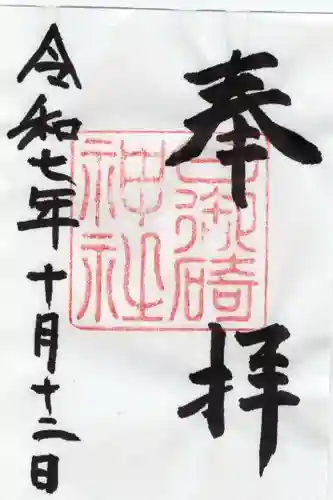 奉拝
日御碕
神社
令和七年十月十二日